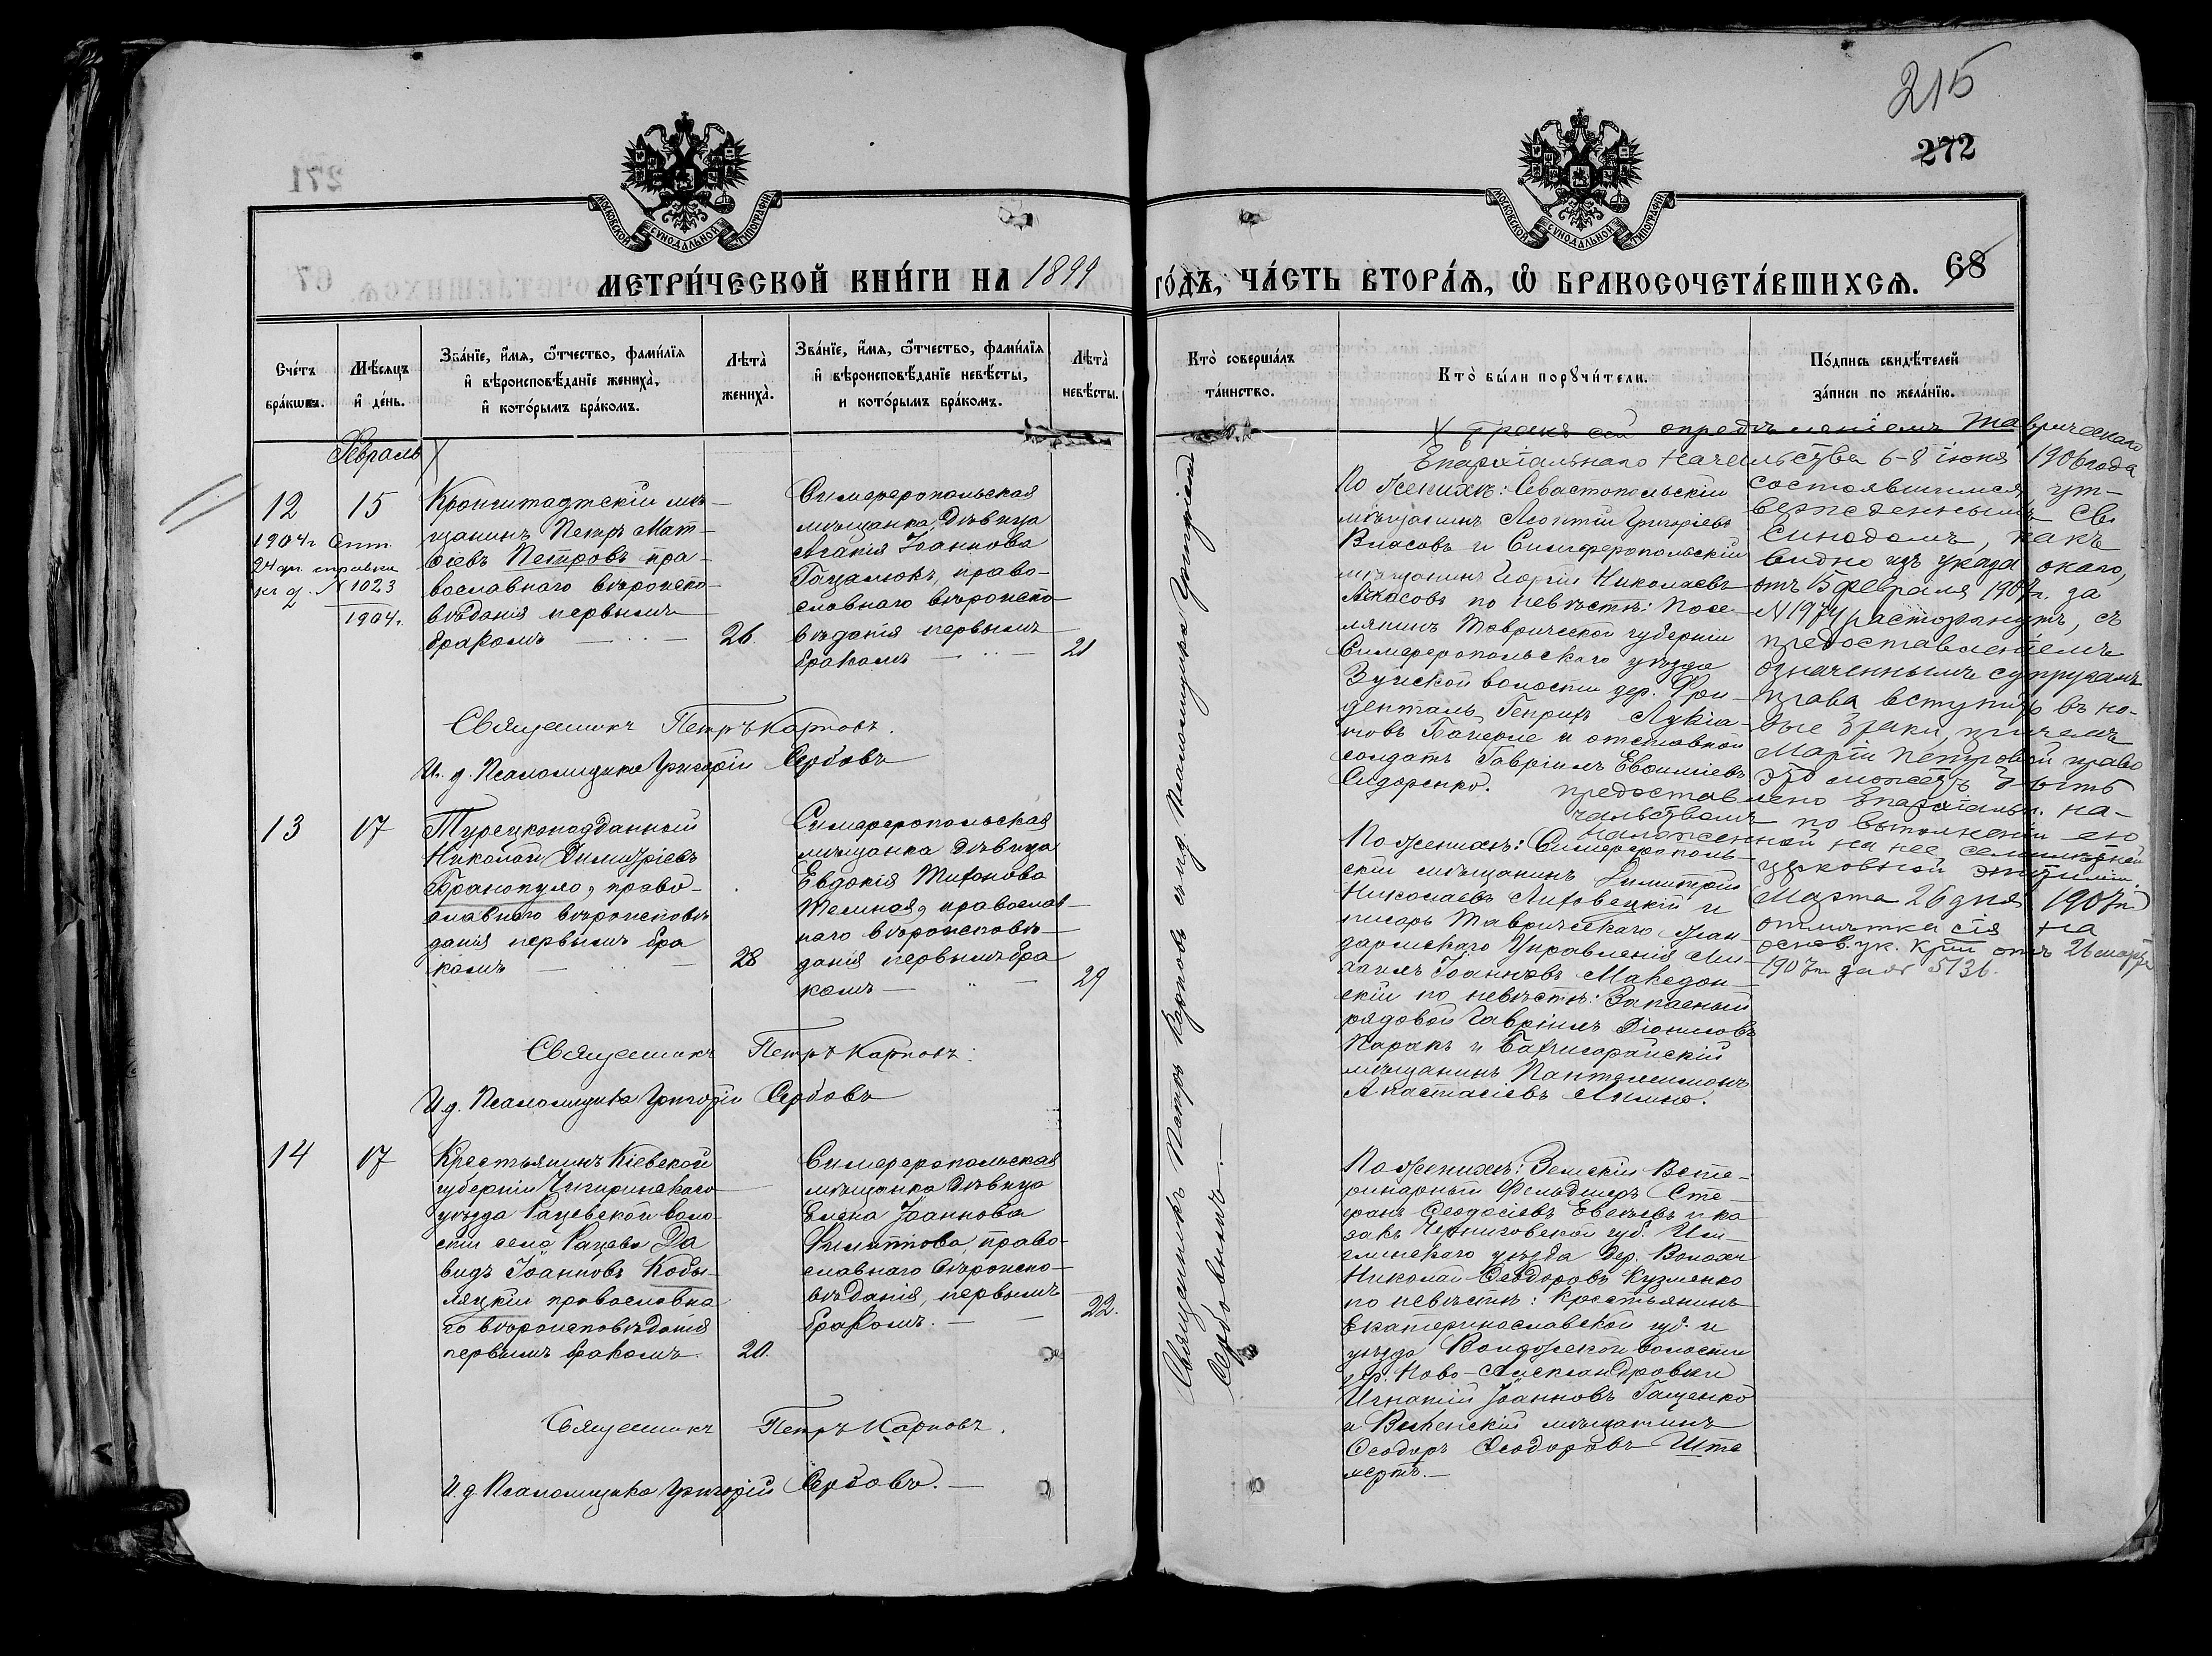 215
272
271
МОСКОВСКОЙ СУНОДАЛЬНОЙ ТИПОГРАФІИ
МОСКОВСКОЙ СУНОДАЛЬНОЙ ТИПОГРАФІИ
МЕТРИ́ЧЕСКОЙ КНИ́ГИ НА 1899 ГО́ДЪ, ЧА́СТЬ ВТОРА́Ѧ, Ѽ БРАКОСОЧЕТА́ВШИХСѦ.
68
Сче́тъ бра́кѡвъ.
Мѣ́сѧцъ и҆ де́нь.
Зва́нїе, и҆́мѧ, ѻ҆́тчество, фами́лїѧ
и҆ вѣроисповѣ́данїе жениха̀,
и҆ кото́рымъ бра́комъ.
Лѣта̀ жениха̀.
Зва́нїе, и҆́мѧ, ѻ҆́тчество, фами́лїѧ
и҆ вѣроисповѣ́данїе невѣ́сты,
и кото́рымъ бра́комъ.
Лѣта̀ невѣ́сты.
Кто̀ соверша́лъ
та́инство.
Кто̀ бы́ли порꙋчи́тели.
По́дпись свидѣ́телей
за́писи по жела́нїю.
Февраль
12
15
1904г Сент.
24 дн. справка
№ 1023
1904г.
Кронштадтскій мѣ-
щанинъ Петръ Мат-
ѳіевъ Петровъ пра-
вославнаго вѣроиспо-
вѣданія первымъ
бракомъ
26.
Симферопольская
мѣщанка, дѣвица
Агапія Іоаннова
право-
славнаго вѣроиспо-
вѣданія первымъ
бракомъ
21
Священникъ Петръ Карповъ.
И. д. Псаломщика Григорій Сербовъ
По женихѣ: Севастопольскій
мѣщанинъ Леонтій Григорьевъ
Власовъ и Симферопольскій
мѣщанинъ Георгій Николаевъ
по невѣстѣ: Посе-
лянинъ Таврической губерніи
Симферопольскаго уѣзда
Зуйской волости дер. Фри-
денталь Генрихъ Лукіа-
новъ и отставной
солдатъ Гавріилъ Евѳиміевъ
Сидоренко.
Х Бракъ сей опредѣленіемъ Таврическаго
Епархіальнаго Начальства 6-8 іюня 1906 года
состоявшимся, ут-
вержденнымъ Св.
Синодомъ, какъ
видно изъ указа онаго,
отъ 15 февраля 1907г. за
№ 1974 расторгнутъ, съ
предоставленіемъ
означеннымъ супругамъ
права вступить въ но-
вые браки, причемъ
Маріи Петровой право
это можетъ быть
предоставлено Епархіальн. на-
чальствомъ по выполненіи ею
наложенной на нее семилѣтней
церковной эпитиміи.
Марта 26 дня 1907г.
отмѣтка сія на
основ. ук. отъ 26 марта
1907г. за № 5136.
13
17
Турецкоподданный
Николай Димитріевъ
Франопуло, право-
славнаго вѣроисповѣ-
данія первымъ бра
комъ
28
Симферопольская
мѣщанка дѣвица
Евдокія Тихонова
Темная, православ-
наго вѣроисповѣ-
данія первымъ бра
комъ
29
Священникъ Петръ Карповъ.
И д. Псаломщика Григорій Сербовъ
По женихѣ: Симферополь-
скій мѣщанинъ Димитрій
Николаевъ Лиховецкій и
писарь Таврическаго Жан-
дармскаго Управленія Ми-
хаилъ Іоанновъ Македон-
скій по невѣстѣ: Запасный
рядовой Гавріилъ Діонисовъ
и Бахчисарайскій
мѣщанинъ Пантелеимонъ
Анастасіевъ
14
17
Крестьянинъ Кіевской
губерніи Чигиринскаго
уѣзда Рацевской воло
сти села Рацева Да
видъ Іоанновъ Кобы-
ляцкій православна
го вѣроисповѣданія
первымъ бракомъ
20.
Симферопольская
мѣщанка дѣвица
Елена Іоаннова
Филиппова, право-
славнаго вѣроиспо-
вѣданія, первымъ
бракомъ.
22.
Священникъ Петръ Карповъ.
И. д. Псаломщика Григорій Сербовъ.
По женихѣ: Земскій Вете-
ринарный Фельдшеръ Сте-
фанъ Ѳеодосіевъ и ка-
закъ Черниговской губ.
уѣзда дер.
Николай Ѳеодоровъ Кузменко
по невѣстѣ: Крестьянинъ
Екатеринославской губ. и
уѣзда волости
дер. Ново-Александровки
Игнатій Іоанновъ Гащенко
и мѣщанинъ
Ѳеодоръ Ѳеодоровъ Ште
мертъ.
Священникъ Петръ Карповъ съ и. д. Псаломщика Григоріемъ
Сербовымъ.